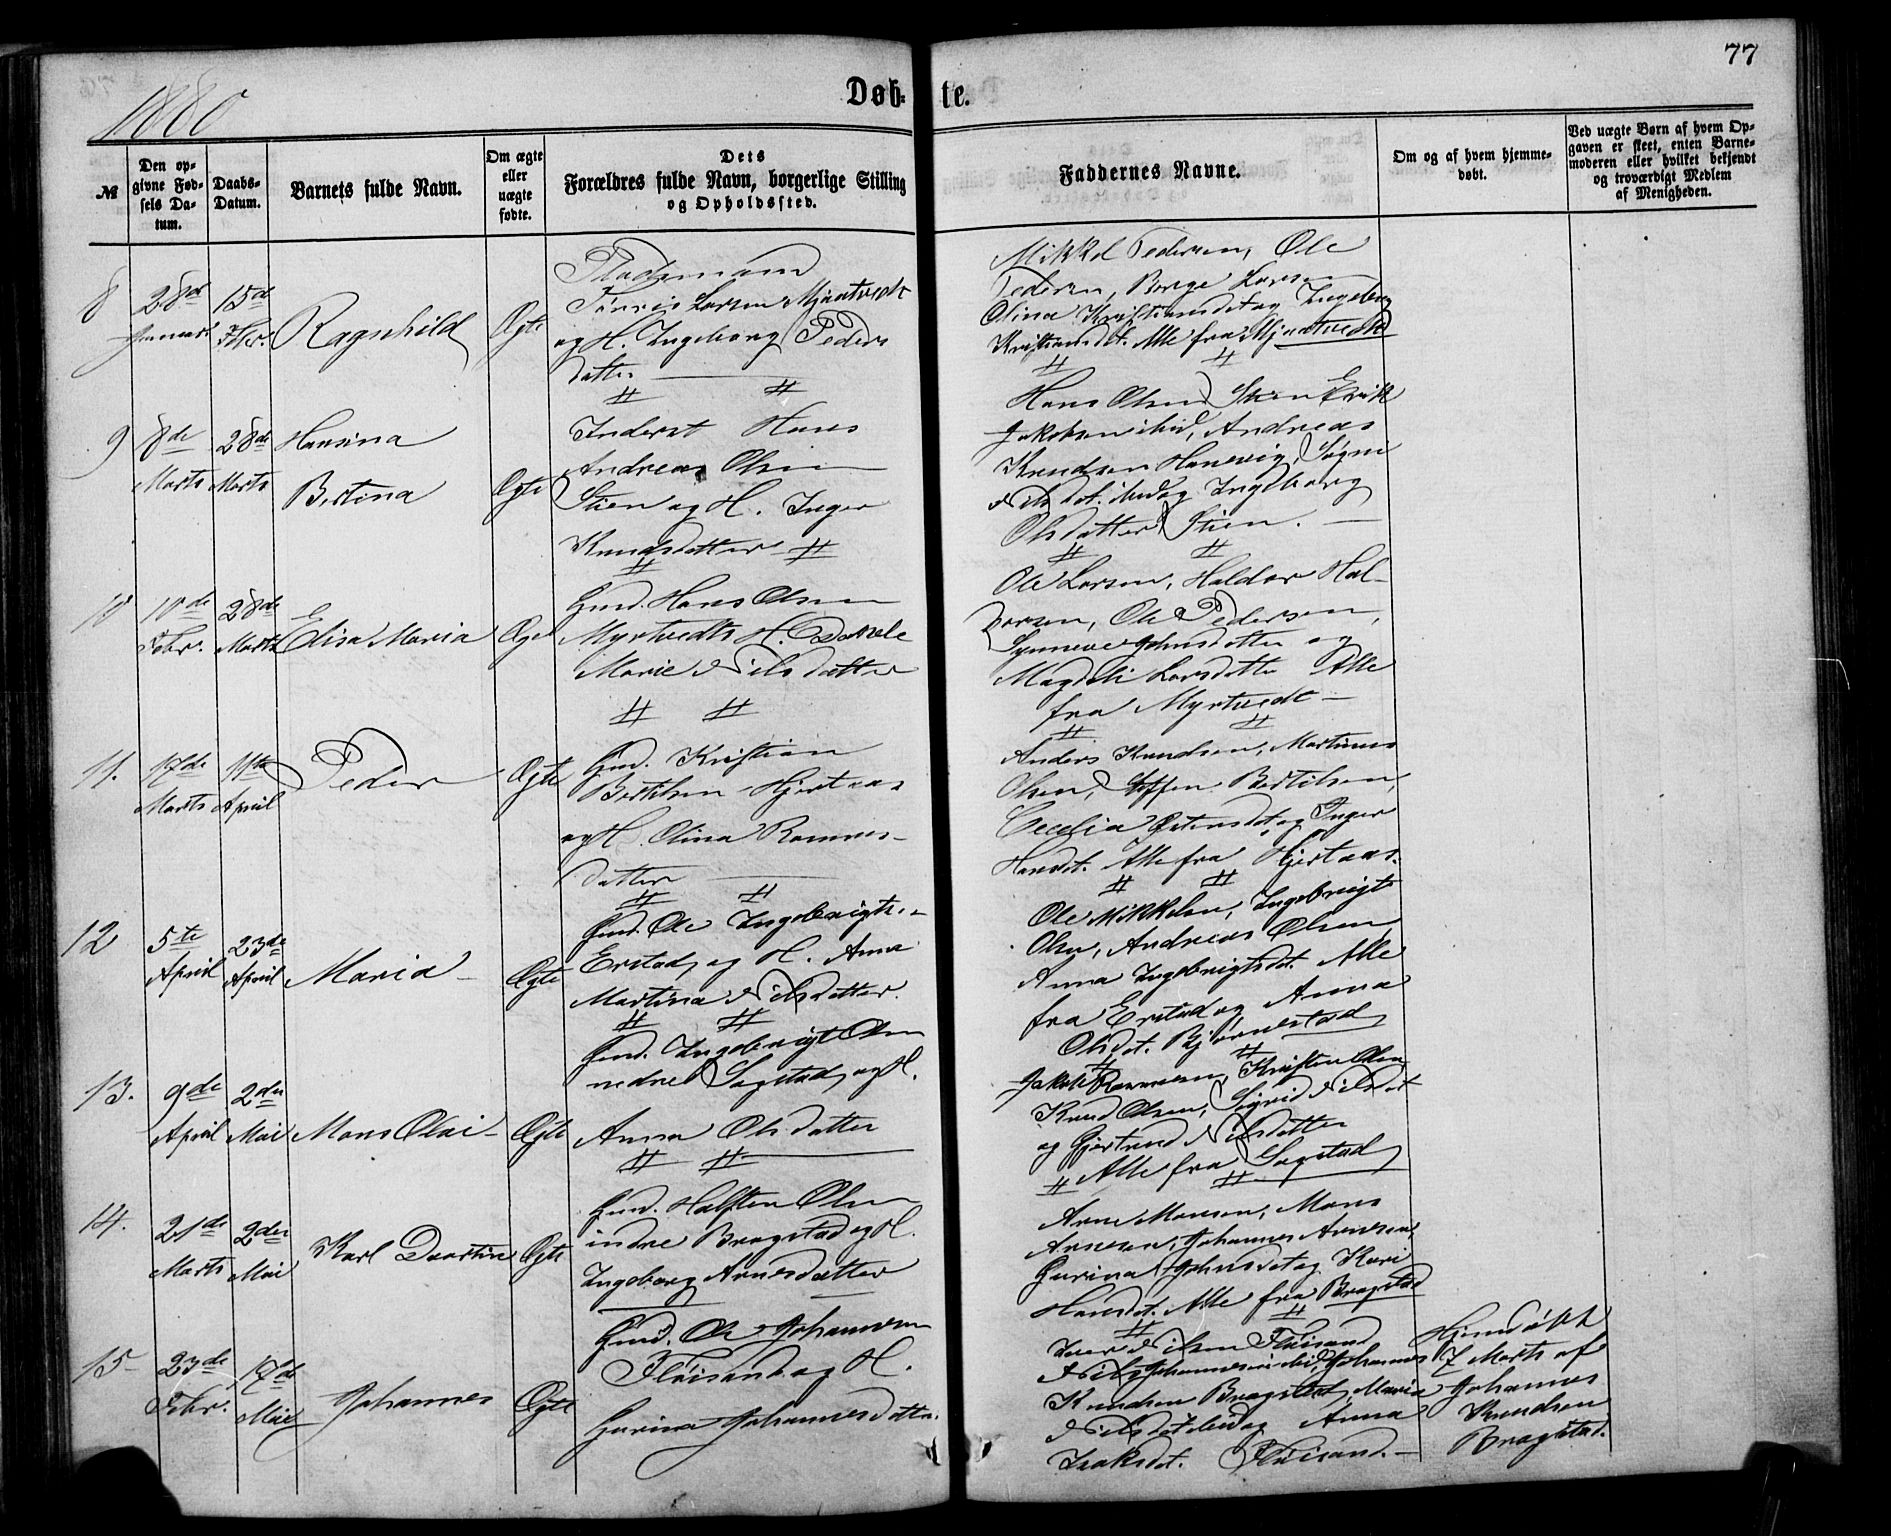 77
1880
Døb- te.
№
Den op-
givne Fød-
sels Da-
tum.
Daabs-
Datum.
Barnets fulde Navn.
Om ægte
eller
uægte
fødte.
Dets
Forældres fulde Navn, borgerlige Stilling
og Opholdssted.
Faddernes Navne.
Om og af hvem hjemme-
døbt.
Ved uægte Børn af hvem Op-
gaven er skeet, enten Barne-
moderen eller hvilket bekjendt
og troværdigt Medlem
af Menigheden.
8
28de
Januar
15de
Febr.
Ragnhild
Ægte
Pladsmand
Tønnis Larsen Mjøntvedt
og H. Ingeborg Peders
datter
Mikkel Pedersen, Ole
Pedersen, Børge Larsen
Olina Kristiansdt. og Ingeborg
Kristiansdt. Alle fra
9
8de
Marts
28de
Marts
Hansina
Bertina
Ægte
Inderst Hans
Andreas Olsen
Stien og H. Inger
Knudsdatter
Hans Olsen Stien Erik
Jakobsen ibid, Andreas
Knudsen Hanevig, Søgni
Nilsdt. ibid og Ingeborg
Olsdatter Stien.
10
10de
Febr.
28de
Marts
Elisa Maria
Ægte
Gmd. Hans Olsen
Myrtvedt & H.
Marie Nilsdatter
Ole Larsen, Haldor Hal-
dorsen, Ole Pedersen,
Synneve Johnsdatter og
Magdeli Larsdatter Alle
fra Myrtvedt
11.
17de
Marts
11te
April
Peder
Ægte
Gmd. Kristian
Bertilsen Hjertaas
og H. Olina Rasmus-
datter
Anders Knudsen, Martinus
Olsen, Steffen Bertilsen,
Cecelia Østensdt. og Inger
Hansdt. Alle fra Hjertaas.
12
5te
April
23de
April
Maria
Ægte
Gmd. Ole Ingebrigts.
Erstad og H. Anna
Martina Nilsdatter.
Ole Mikkelsen, Ingebrigt
Olsen, Andreas Olsen
Anna Ingebrigtsdt. Alle
fra Erstad og Anna
Olsdt. Bjørnestad
13.
9de
April
2den
Mai
Mons Olai
Ægte
Gmd. Ingebrigt Olsen
nedre Sagstad og H.
Anna Olsdatter
Jakob Rasmussen, Kristen Olsen
Knud Olsen, Sigrid Nilsdat
og Gjertrud Nilsdatter
Alle fra Sagstad
14.
21de
Marts
2den
Mai
Karl
Ægte
Gmd. Halsten Olsen
indre Bragstad og H.
Ingeborg Arnesdatter
Arne Monsen, Mons
Arnesen, Johannes Arnesen,
Gurina Johnsdt. og Kari
Hansdt. Alle fra Bragstad
15
23de
Febr.
17de
Mai
Johannes
Ægte
Gmd. Ole Johannesen
Fløisand og H.
Gurina Johannesdatter.
Iver Nilsen Fløisand
Nils Johannesen ibid, Johannes
Knudsen Bragstad, Maria
Nilsdt. ibid og Anna
Isaksdt. Fløisand.
Hjemdøbt
7 Marts af
Johannes
Knudsen
Bragstad.